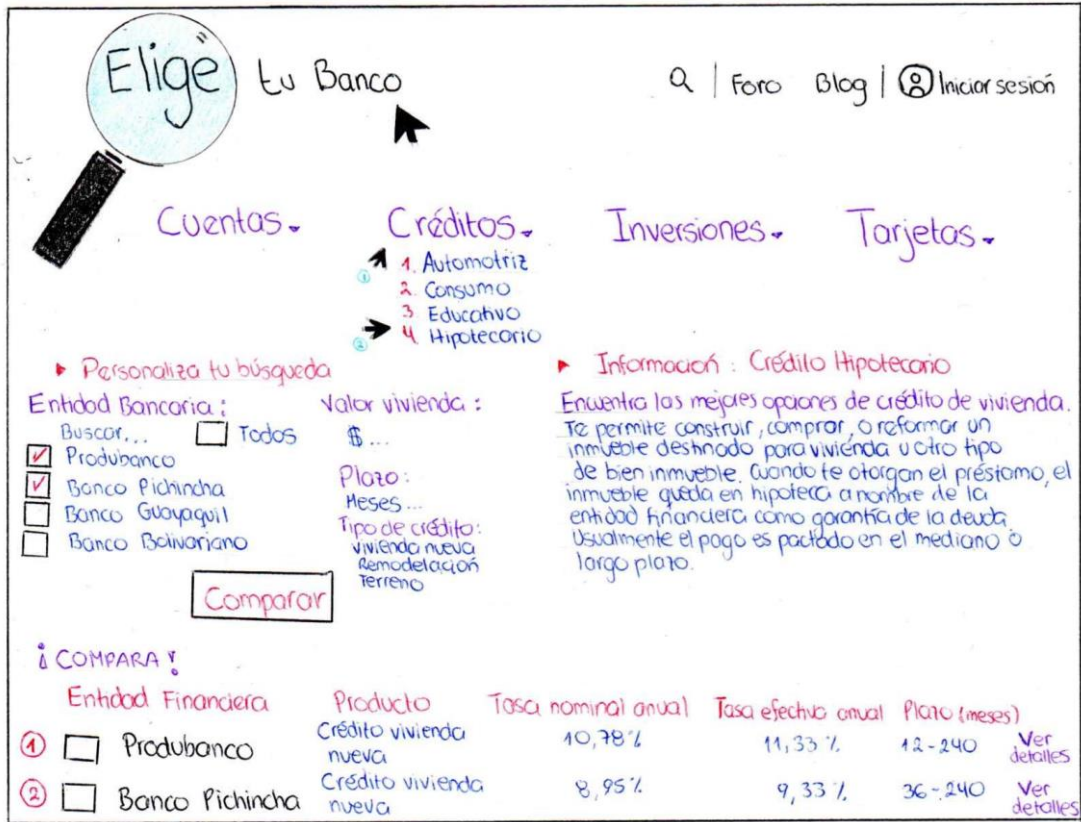 Elige tu Banco
Foro Blog | Iniciar sesión
Cuentas Créditos Inversiones Tarjetas
1. Automotriz
2. Consumo
3 Educativo
4 Hipotecario
1
2
Personaliza tu búsqueda
Entidad Bancaria :
Buscar... Todos
Produbanco
Banco Pichincha
Banco Guayaquil
Banco Bolivariano
Valor vivienda :
$ ...
Plazo :
Meses...
Tipo de crédito :
vivienda nueva
Remodelación
Terreno
Comparar
Información : Crédito Hipotecario
Encuentra las mejores opciones de crédito de vivienda.
Te permite construir, comprar, o reformar un
inmueble destinado para vivienda u otro tipo
de bien inmueble. Cuando te otorgan el préstamo, el
inmueble queda en hipoteca a nombre de la
entidad financiera como garantía de la deuda.
Usualmente el pago es pactado en el mediano o
largo plazo.
¡COMPARA!
Entidad Financiera Producto Tasa nominal anual Tasa efectiva anual Plazo (meses)
1 Produbanco Crédito vivienda nueva 10,78% 11,33% 12-240 Ver detalles
2 Banco Pichincha Crédito vivienda nueva 8,95% 9,33% 36-240 Ver detalles